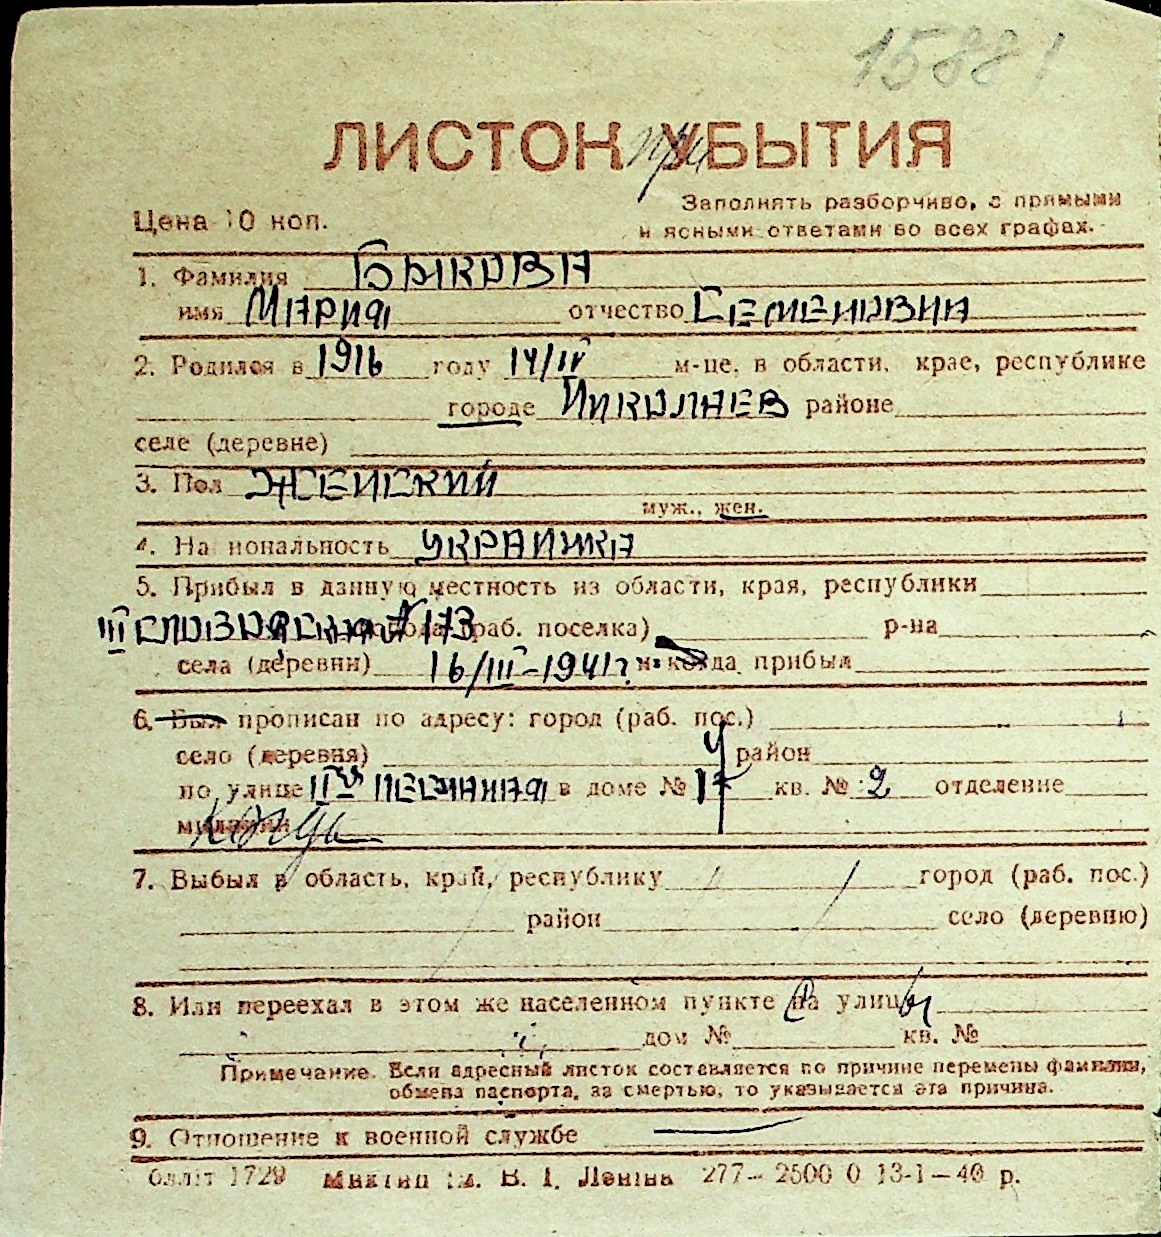 15881
ЛИСТОК при УБЫТИЯ
Заполнять разборчиво, с прямыми
Цена 10 коп.
и ясными ответами во всех графах.
1. Фамилия БЫКОВА
имя МАРИЯ отчество СЕМЕНОВНА
2. Родился в 1916 году 14/IV м-це, в области, крае, республике
городе НИКОЛАЕВ районе
селе (деревне)
3. Пол ЖЕНСКИЙ
муж., жен.
4. Национальность УКРАИНКА
5. Прибыл в данную местность из области, края, республики
III СЛОВОДСКАЯ № 173 города (раб. поселка) р-на
села (деревни) 16/III-1941 г. и когда прибыл
6. Был прописан по адресу: город (раб. пос.)
село (деревня) район
по улице IV ПЕСЧАНАЯ в доме № 17 кв. № 2 отделение
милиции
7. Выбыл в область, край, республику город (раб. пос.)
район село (деревню)
8. Или переехал в этом же населенном пункте на улицы
дом № кв. №
Примечание. Если адресный листок составляется по причине перемены фамилии,
обмена паспорта, за смертью, то указывается эта причина.
9. Отношение к военной службе —
1729 ім. В. І. Леніна 277–2500 0 13-1–40 р.